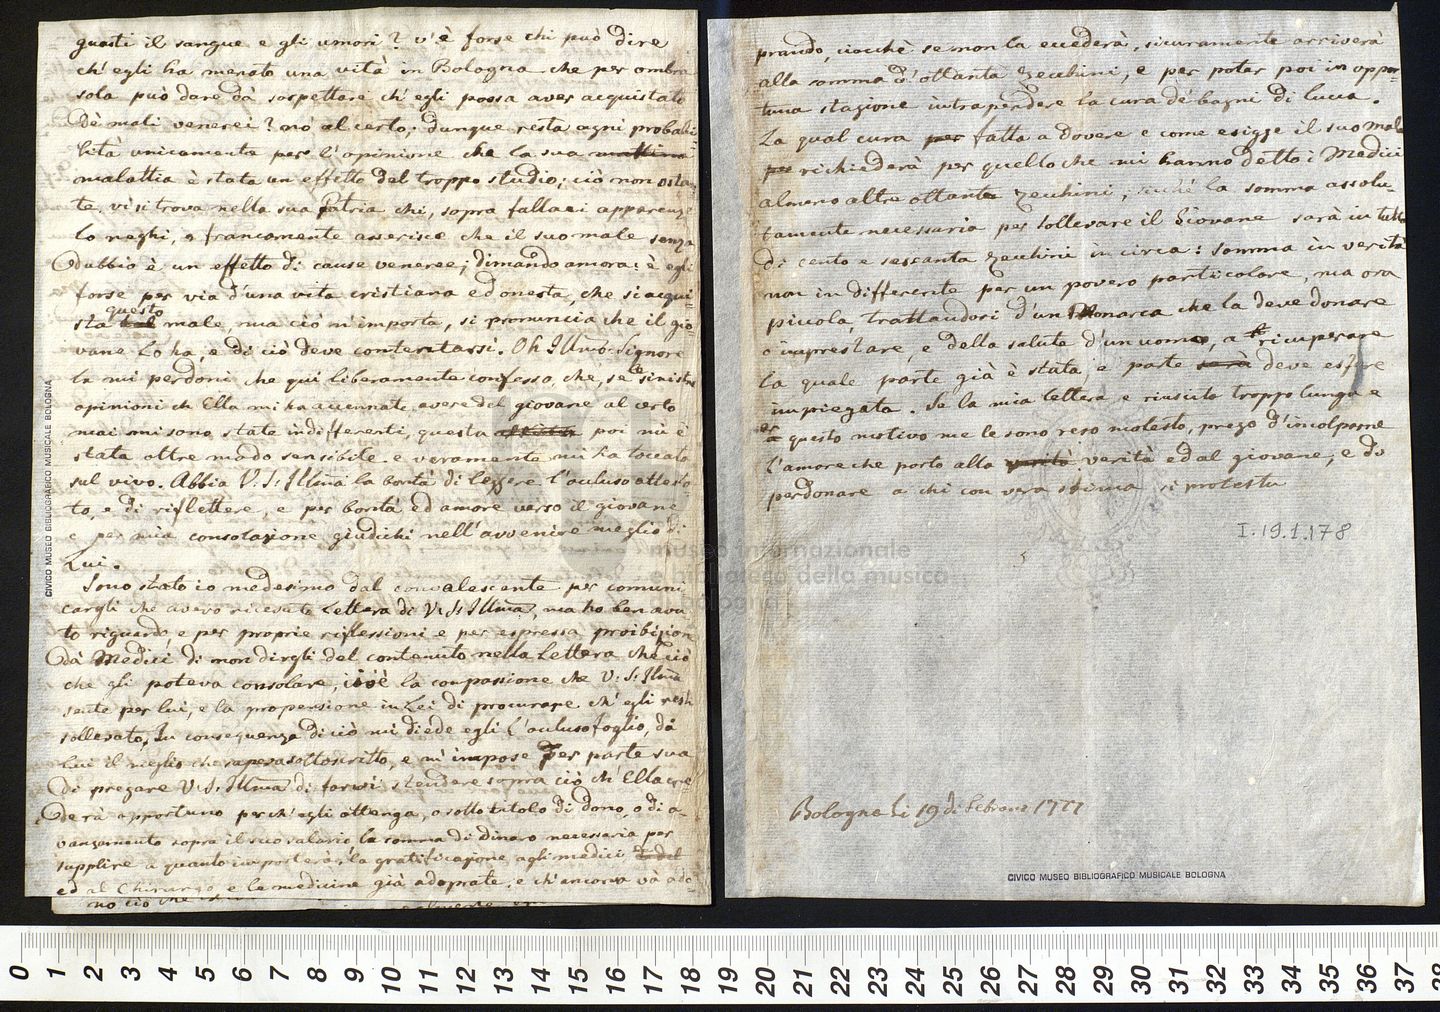 guasti il sangue e gli umori? v'è forse chi può dire
ch'egli ha menato una vita in Bologna che per ombra
sola può dare dà sospettare ch'egli possa aver acquistato
dè mali venerei? nò al certo; dunque resta ogni probabi
lità unicamente per l'opinione che la sua mattina
malattia è stata un effetto del troppo studio; ciò non ostan
te, vi si trova nella sua Patria chi, sopra fallaci apparenze
lo neghi, e francamente asserisce che il suo male senza
dubbio è un effetto di cause veneree; dimando ancora: è egli
forse per via d'una vita cristiana ed onesta, che si acqui-
questo
sta tal male, ma ciò m'importa, si pronuncia che il gio-
vane lo ha, e di ciò deve contentarsi. Oh Illmo. Signore
la mi perdoni che qui liberamente confesso, che, se le sinistre
opinioni ch Ella mi ha accennate avere del giovane al certo
mai mi sono state indifferenti, questa poi mi è
stata oltre modo sensibile e veramente mi ha toccato
sul vivo. Abbia V: S: Illma la bontà di leggere l'acluso attesta-
to, e di riflettere, e per bontà ed amore verso il giovane
e per mia consolazione giudichi nell'avvenire meglio di
Lui.
Sono stato io medesimo dal convalescente per comuni
cargli che avevo ricevuta Lettera di V: S: Illma, ma ho ben avu
to riguardo, e per proprie riflessioni e per espressa proibizion
dà Medici di non dirgli del contenuto nella Lettera che ciò
che gli poteva consolare, cioè la compassione che V: S: Illma
sente per lui, e la propensione in Lei di procurare ch'egli resti
sollevato. In conseguenza di ciò mi diede egli l'acluso foglio, dà
Lui il meglio che sapeva sottoscritto, e m'impose per parte sua
di pregare V: S: Illma di farvi stendere sopra ciò ch'Ella cre
derà opportuno perch'egli ottenga, o sotto titolo di dono, o di a-
vanzamento sopra il suo salario la somma di dinaro necessaria per
supplire a quanto importerà la gratificazione agli medici, e del
ed al Chirurgo e le medicine già adoprate, e ch'ancora và ado-
no ciò che
prando, ciocchè se non la eccederà, sicuramente arriverà
alla somma d'ottanta Zecchini, e per poter poi in oppor
tuna stagione intraprendere la cura dè bagni di Lucca.
La qual cura per fatta a dovere e come esigge il suo mal
per richiederà per quello che mi hanno detto i Medici
almeno altre ottanta Zecchini, sicchè la somma assolu-
tamente necessaria per sollevare il Giovane sarà in tutto
di cento e sessanta Zecchini in circa: somma in verità
non indifferente per un povero particolare, ma ora
piccola, trattandosi d'un Monarca che la deve donare
o imprestare, e della salute d'un uomo, a ricuperare
la quale parte già è stata, e parte sarà deve essere
impiegata. Se la mia lettera e riuscita troppo lunga e
per
a questo motivo me le sono reso molesto, prego d'incolparne
l'amore che porto alla verità verità ed al giovane, e di
perdonare a chi con vera stima si protesta
I.19.1.178
Bologna li 19 di Febraro 1777
CIVICO MUSEO BIBLIOGRAFICO MUSICALE BOLOGNA
CIVICO MUSEO BIBLIOGRAFICO MUSICALE BOLOGNA
museo internazionale
e biblioteca della musica
bologna
0 1 2 3 4 5 6 7 8 9 10 11 12 13 14 15 16 17 18 19 20 21 22 23 24 25 26 27 28 29 30 31 32 33 34 35 36 37 38